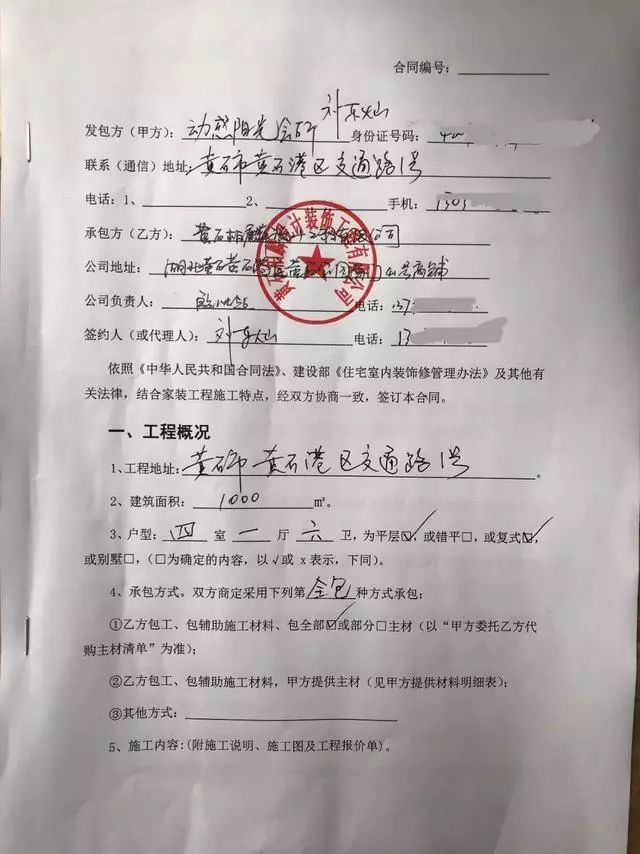 合同编号：
发包方（甲方）：动感阳光会所 身份证号码：
联系（通信）地址：黄石市黄石港区交通路1号
电话：1、 2、 手机：
承包方（乙方）：黄石 公司
公司地址：湖北黄石黄石港区 商铺
公司负责人： 电话：
签约人（或代理人）： 电话：
依照《中华人民共和国合同法》、建设部《住宅室内装饰修管理办法》及其他有
关法律，结合家装工程施工特点，经双方协商一致，签订本合同。
一、工程概况
1、工程地址：黄石市黄石港区交通路1号。
2、建筑面积：1000㎡。
3、户型：四室一厅六卫，为平层☑，或错平□，或复式☑，
或别墅□，（□为确定的内容，以√或 x 表示，下同）。
4、承包方式。双方商定采用下列第全包种方式承包：
①乙方包工、包辅助施工材料、包全部☑或部分□主材（以“甲方委托乙方代
购主材清单”为准）；
②乙方包工、包辅助施工材料，甲方提供主材（见甲方提供材料明细表）；
③其他方式：
5、施工内容：(附施工说明、施工图及工程报价单)。